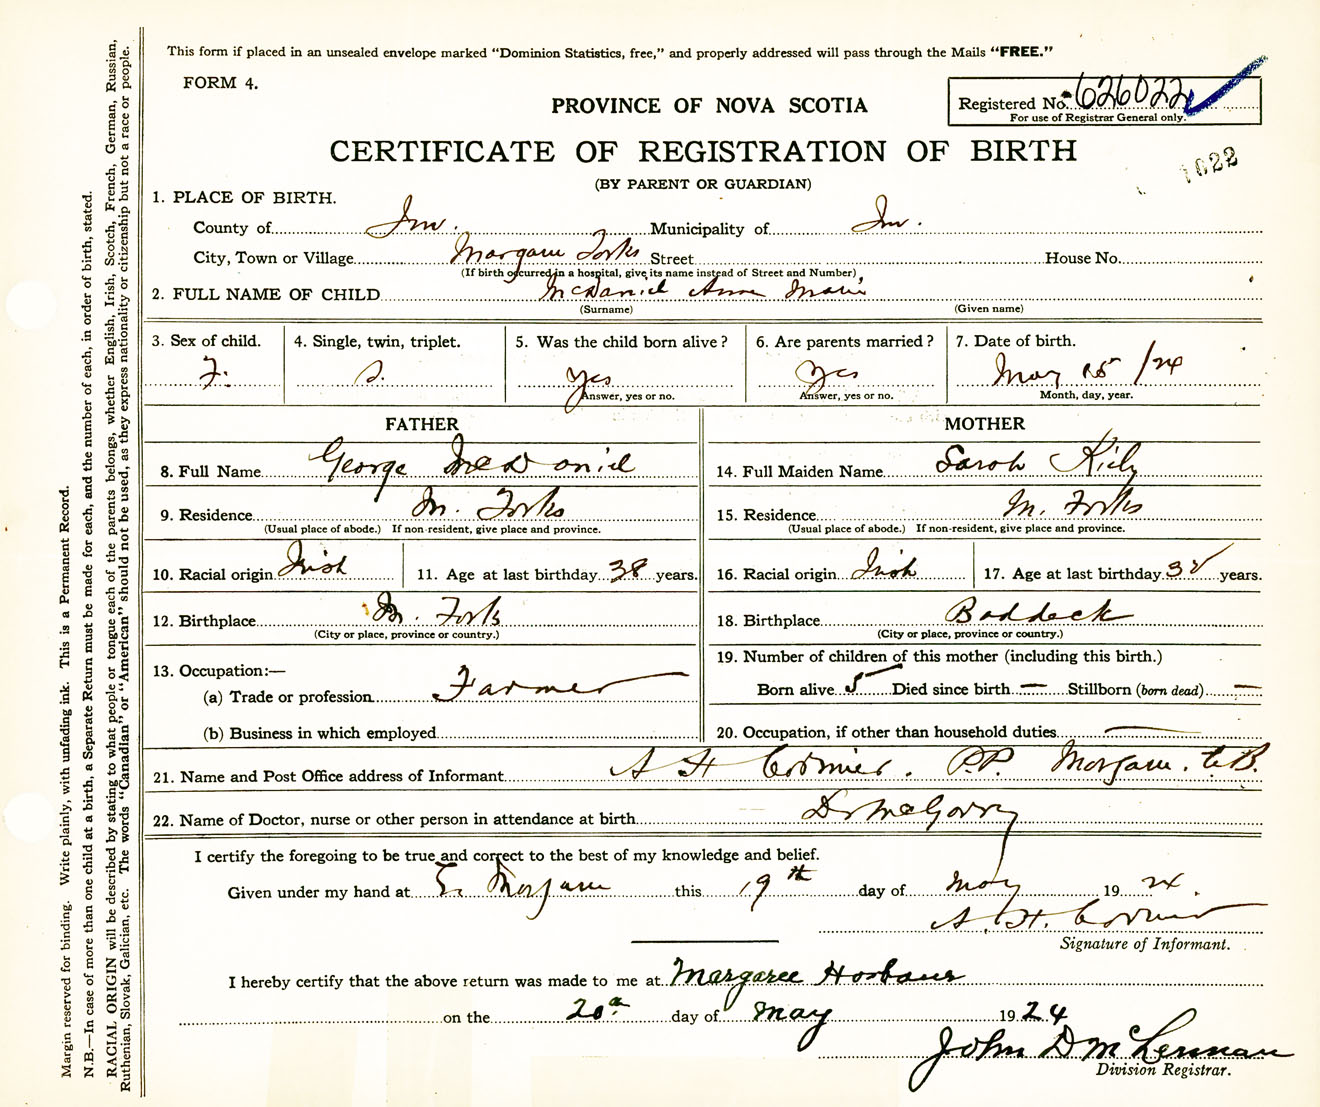 This form if placed in an unsealed envelope marked “Dominion Statistics, free,” and properly addressed will pass through the Mails “FREE.”
FORM 4.
PROVINCE OF NOVA SCOTIA
Registered No. 626022
For use of Registrar General only.
CERTIFICATE OF REGISTRATION OF BIRTH
1622
(BY PARENT OR GUARDIAN)
1. PLACE OF BIRTH.
County of Inv. Municipality of Inv.
City, Town or Village Margaree Forks Street House No.
(If birth occurred in a hospital, give its name instead of Street and Number)
2. FULL NAME OF CHILD McDaniel Anna Marie
(Surname) (Given name)
3. Sex of child. 4. Single, twin, triplet. 5. Was the child born alive? 6. Are parents married? 7. Date of birth.
F. S. Yes Yes May 15 /24
Answer, yes or no. Answer, yes or no. Month, day, year.
FATHER MOTHER
8. Full Name George McDaniel 14. Full Maiden Name Sarah Kiely
9. Residence M. Forks 15. Residence M. Forks
(Usual place of abode.) If non-resident, give place and province. (Usual place of abode.) If non-resident, give place and province.
10. Racial origin Irish 11. Age at last birthday 38 years. 16. Racial origin Irish 17. Age at last birthday years.
12. Birthplace M. Forks 18. Birthplace Baddeck
(City or place, province or country.) (City or place, province or country.)
13. Occupation:— 19. Number of children of this mother (including this birth.)
(a) Trade or profession Farmer Born alive 5 Died since birth — Stillborn (born dead) —
(b) Business in which employed 20. Occupation, if other than household duties —
21. Name and Post Office address of Informant A H Cormier. P.P. Margaree. C.B.
22. Name of Doctor, nurse or other person in attendance at birth Dr McGarry
I certify the foregoing to be true and correct to the best of my knowledge and belief.
Given under my hand at E. Margaree this 19th day of May 1924.
A. H. Cormier
Signature of Informant.
I hereby certify that the above return was made to me at Margaree Harbour
on the 20th day of May 1924
John D McLennan
Division Registrar.
Margin reserved for binding. Write plainly, with unfading ink. This is a Permanent Record.
N.B.—In case of more than one child at a birth, a Separate Return must be made for each, and the number of each, in order of birth, stated.
RACIAL ORIGIN will be described by stating to what people or tongue each of the parents belongs, whether English, Irish, Scotch, French, German, Russian,
Ruthenian, Slovak, Galician, etc. The words “Canadian” or “American” should not be used, as they express nationality or citizenship but not a race or people.